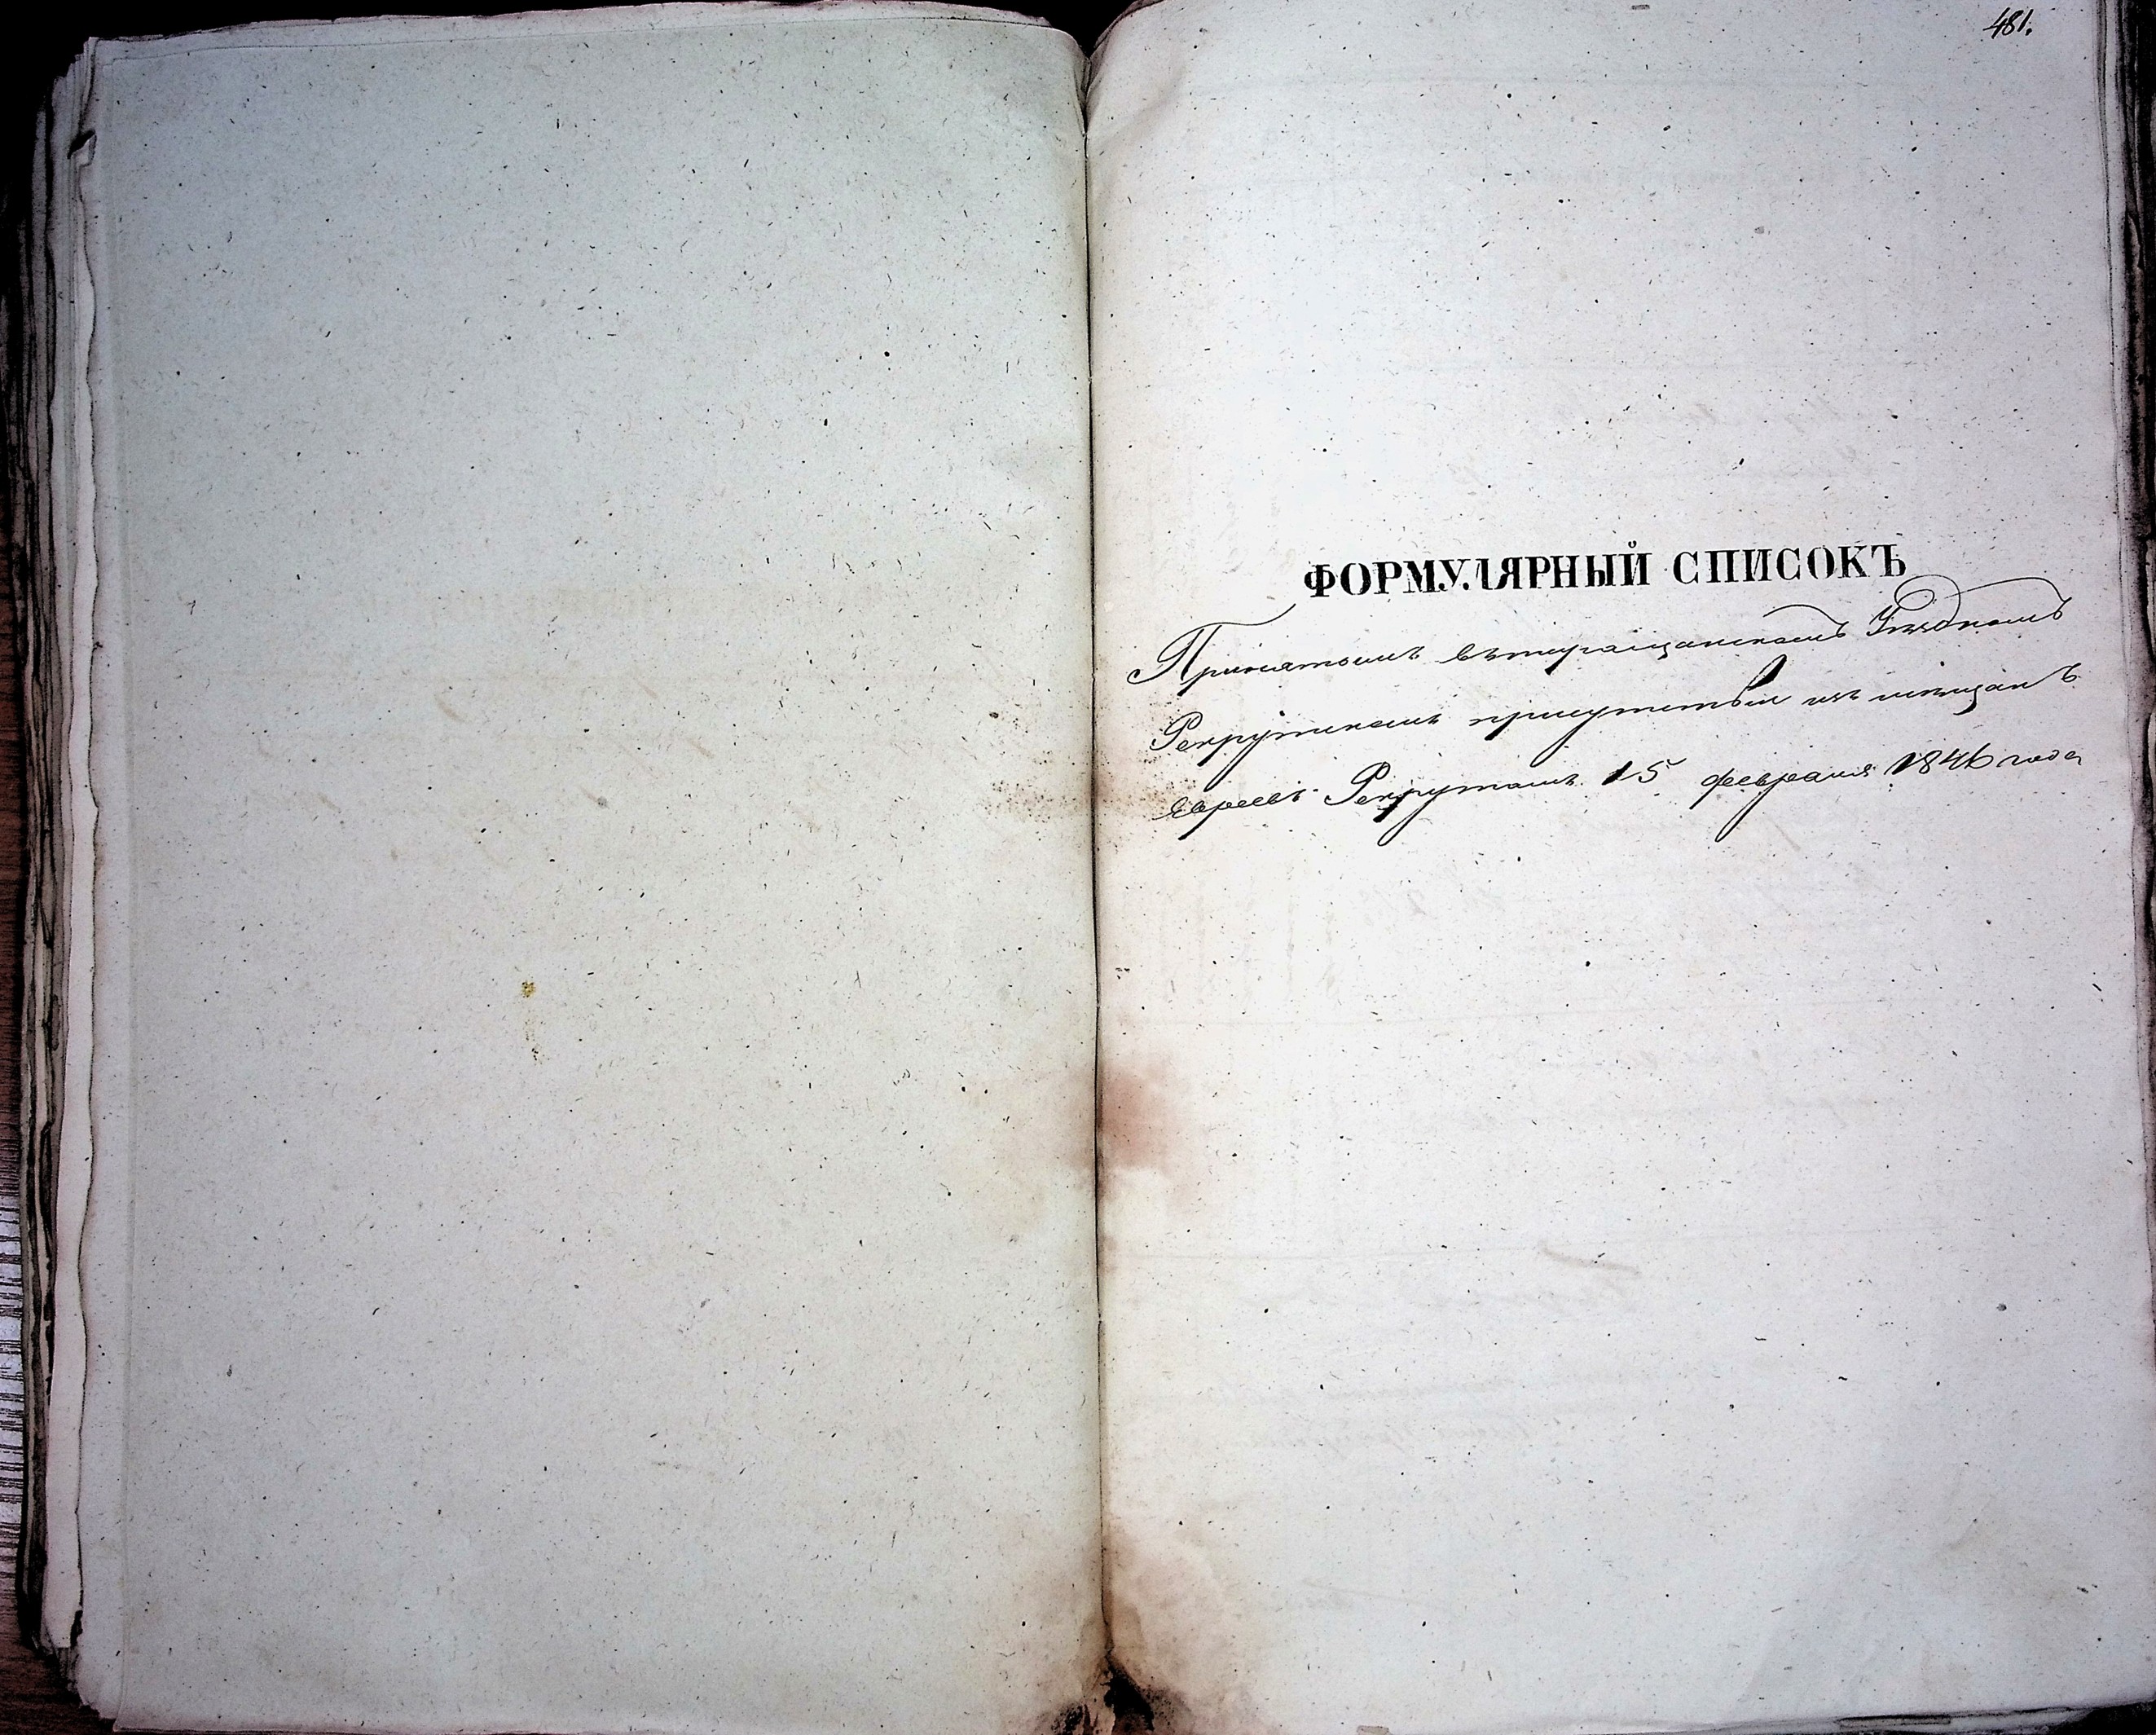 481.
ФОРМУЛЯРНЫЙ СПИСОКЪ
Принятомъ въ Таращанскомъ Уѣздномъ
Рекрутскомъ присутствіи изъ мѣщанъ
евреевъ Рекрутамъ 15 февраля 1846 года